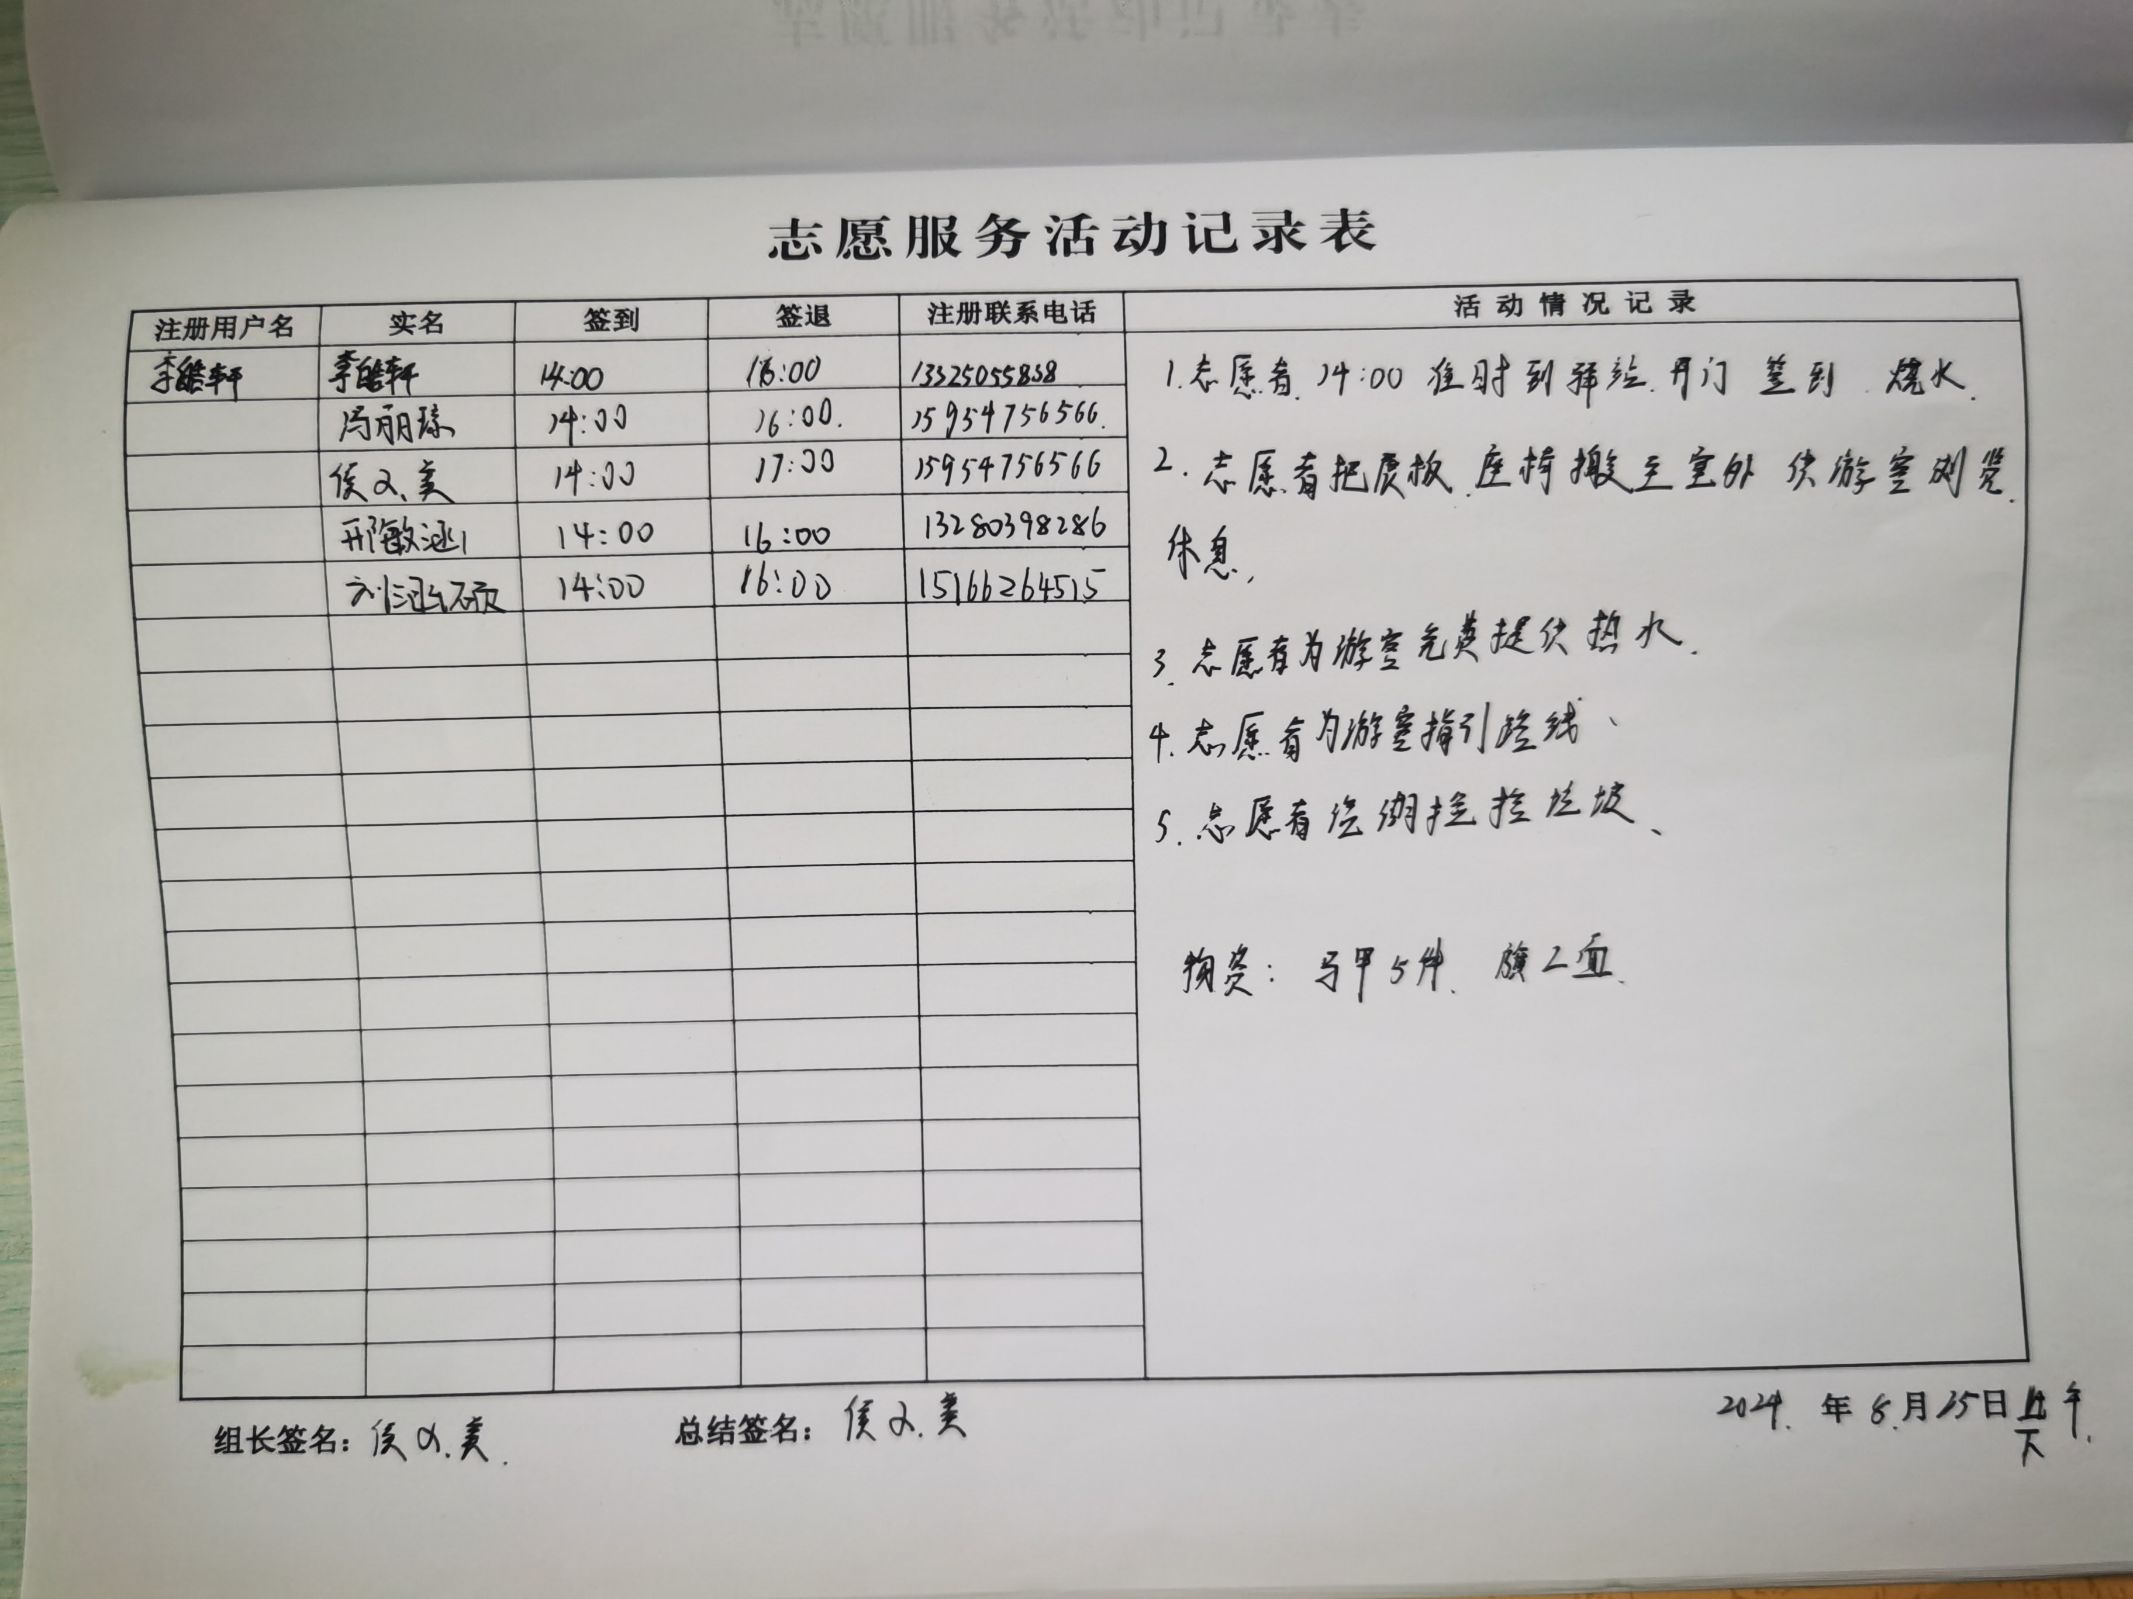 志愿服务活动记录表
注册用户名 实名 签到 签退 注册联系电话 活动情况记录
李皓轩 李皓轩 14:00 16:00 13325055838
冯丽琼 14:00 16:00. 15954756566.
侯义美 14:00 17:00 15954756566
邢敏涵 14:00 16:00 13280398286
刘涵硕 14:00 16:00 15166264515
1.志愿者.14:00 准时到驿站.开门 签到.烧水.
2.志愿者把展板.座椅搬至室外 供游客浏览.
休息.
3.志愿者为游客免费提供热水.
4.志愿者为游客指引路线、
5.志愿者绕湖捡拾垃圾、
物资:马甲5件.旗2面.
组长签名:侯义美.
总结签名:侯义美
2024.年8.月25日 午.
下